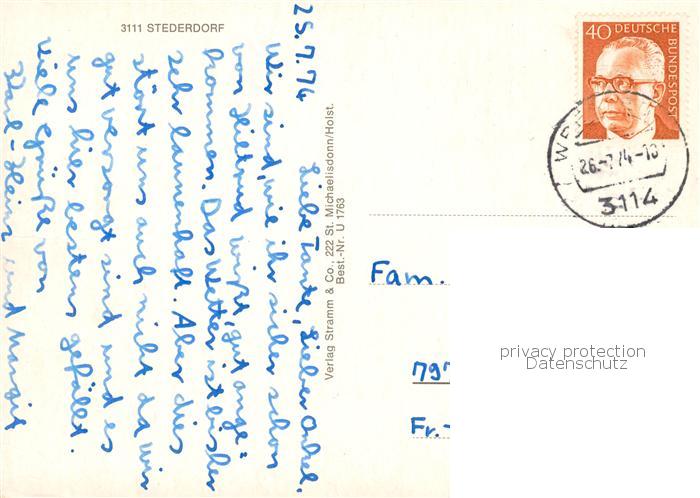 3111 STEDERDORF
25.7.74
Liebe Tante, Lieber Onkel.
Wir sind, wie ihr sicher schon
von Hiltrud wißt, gut ange-
kommen. Das Wetter ist bisher
sehr launenhaft. Aber dies
stört uns auch nicht da wir
gut versorgt sind und es
uns hier bestens gefällt.
Viele Grüße von
Karl-Heinz und Margit
Verlag Stramm & Co., 222 St. Michaelisdonn/Holst.
Best.-Nr. U 1763
40 DEUTSCHE
BUNDESPOST
26.-7.74-18
3114
Fam.
797
Fr.-
privacy protection
Datenschutz